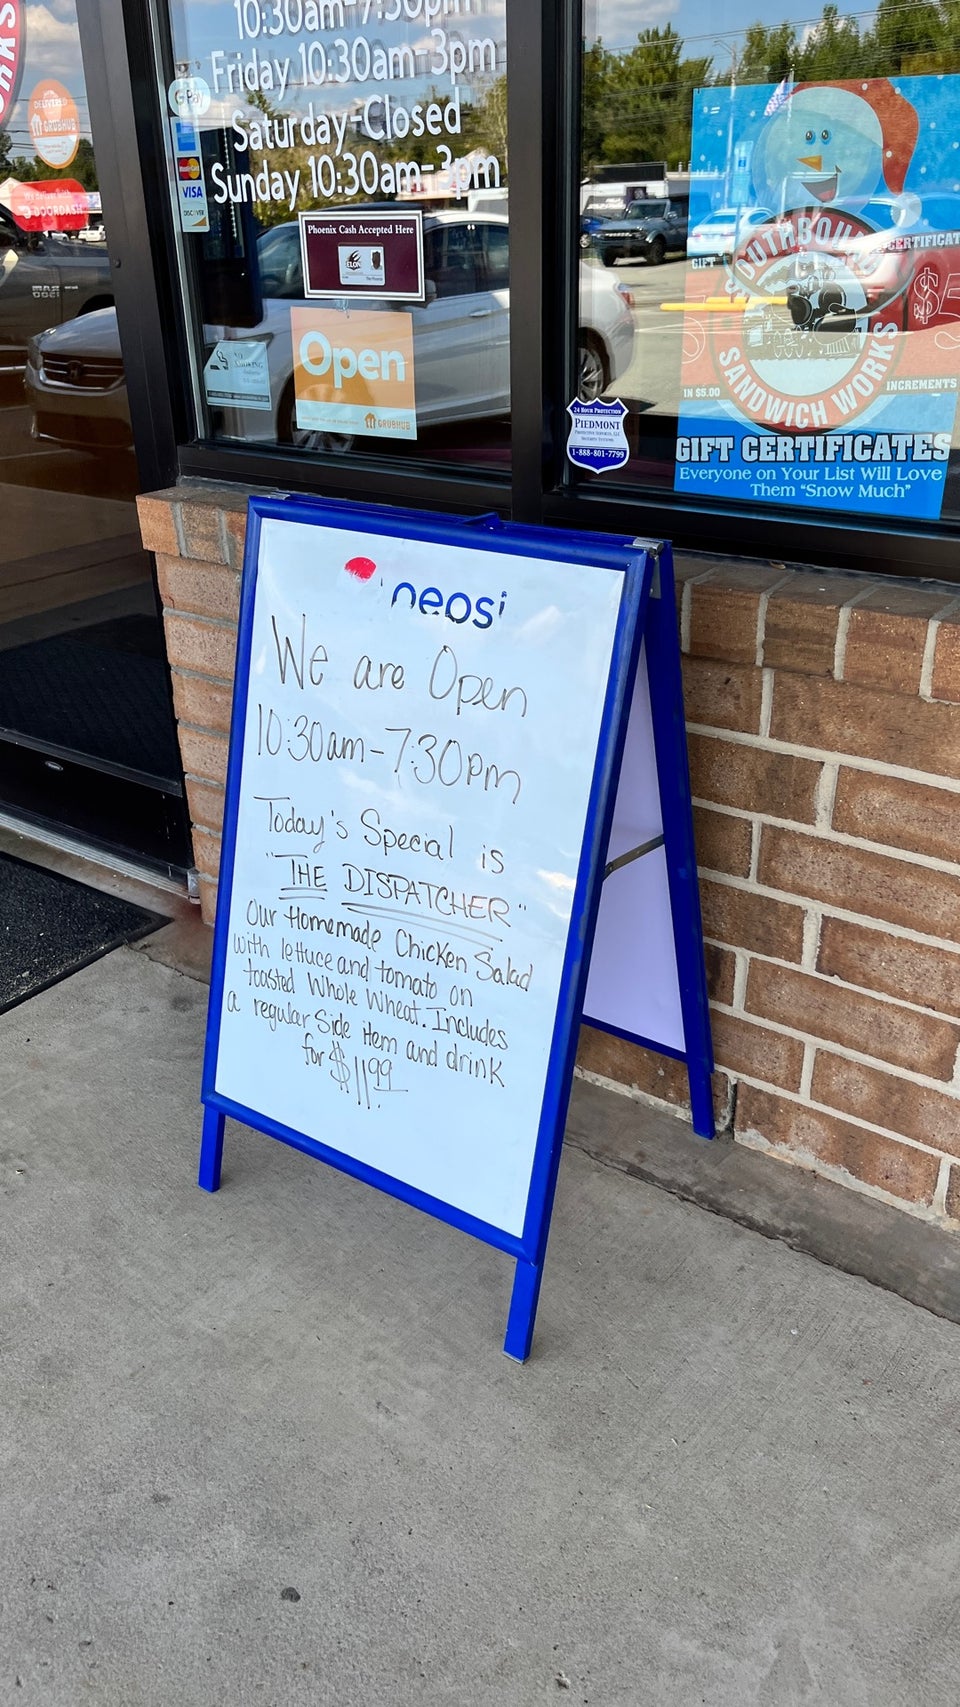 10:30am-7:30pm
Friday 10:30am-3pm
Saturday-Closed
Sunday 10:30am-3pm
G Pay
MasterCard
VISA
DISCOVER
DELIVERED
GRUBHUB
We deliver with
DOORDASH
Phoenix Cash Accepted Here
ELON
Open
GRUBHUB
NO
SMOKING
24 Hour Protection
PIEDMONT
1-888-801-7799
SOUTHBOUND
SANDWICH WORKS
GIFT
CERTIFICAT
$5
IN $5.00
INCREMENTS
GIFT CERTIFICATES
Everyone on Your List Will Love
Them "Snow Much"
neosi
We are Open
10:30am-7:30pm
Today's Special is
"THE DISPATCHER"
Our Homemade Chicken Salad
with lettuce and tomato on
toasted Whole Wheat. Includes
a regular Side item and drink
for $11.99